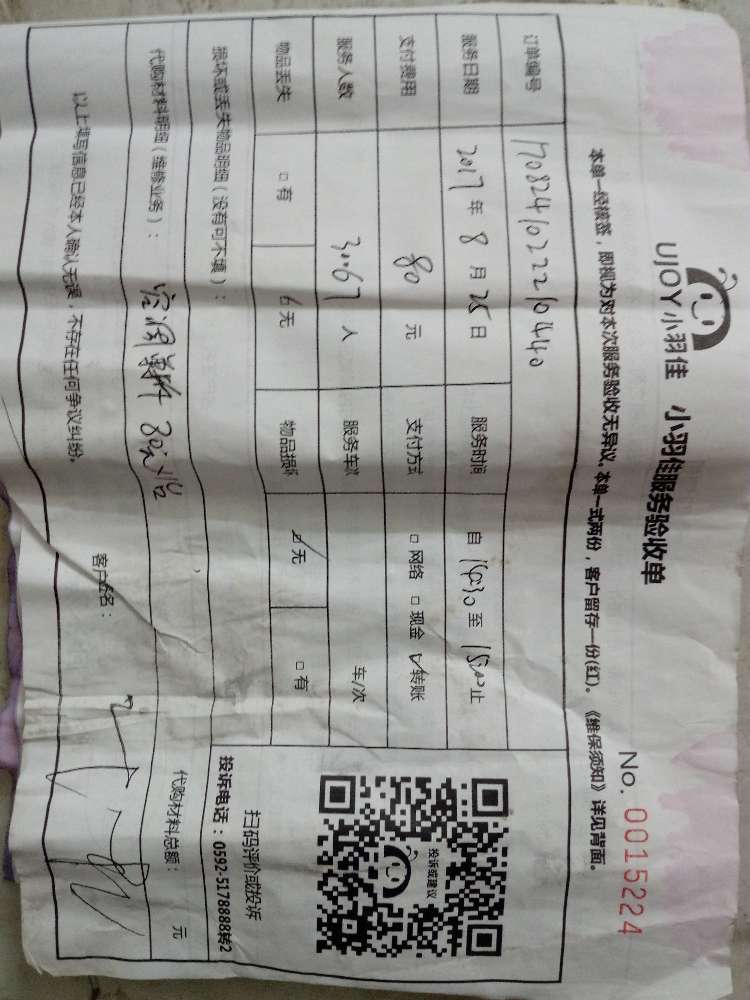 UJOY小羽佳 小羽佳服务验收单
No. 0015224
本单一经核签，即视为对本次服务验收无异议，本单一式两份，客户留存一份(红)。《维保须知》详见背面。
订单编号 17082410222210440
服务日期 2017 年 8 月 25 日 服务时间 自 至 止
支付费用 80 元 支付方式 □ 网络 □ 现金 ☑ 转账
服务人数 人 服务车次 车/次
物品丢失 □ 有 ☑ 无 物品损坏 ☑ 无 □ 有
损坏或丢失物品明细（没有可不填）：
代购材料明细（维修业务）： 代购材料总额： 元
以上填写信息已经本人确认无误，不存在任何争议纠纷。
客户签名：
投诉或建议
扫码评价或投诉
投诉电话：0592-5178888转2